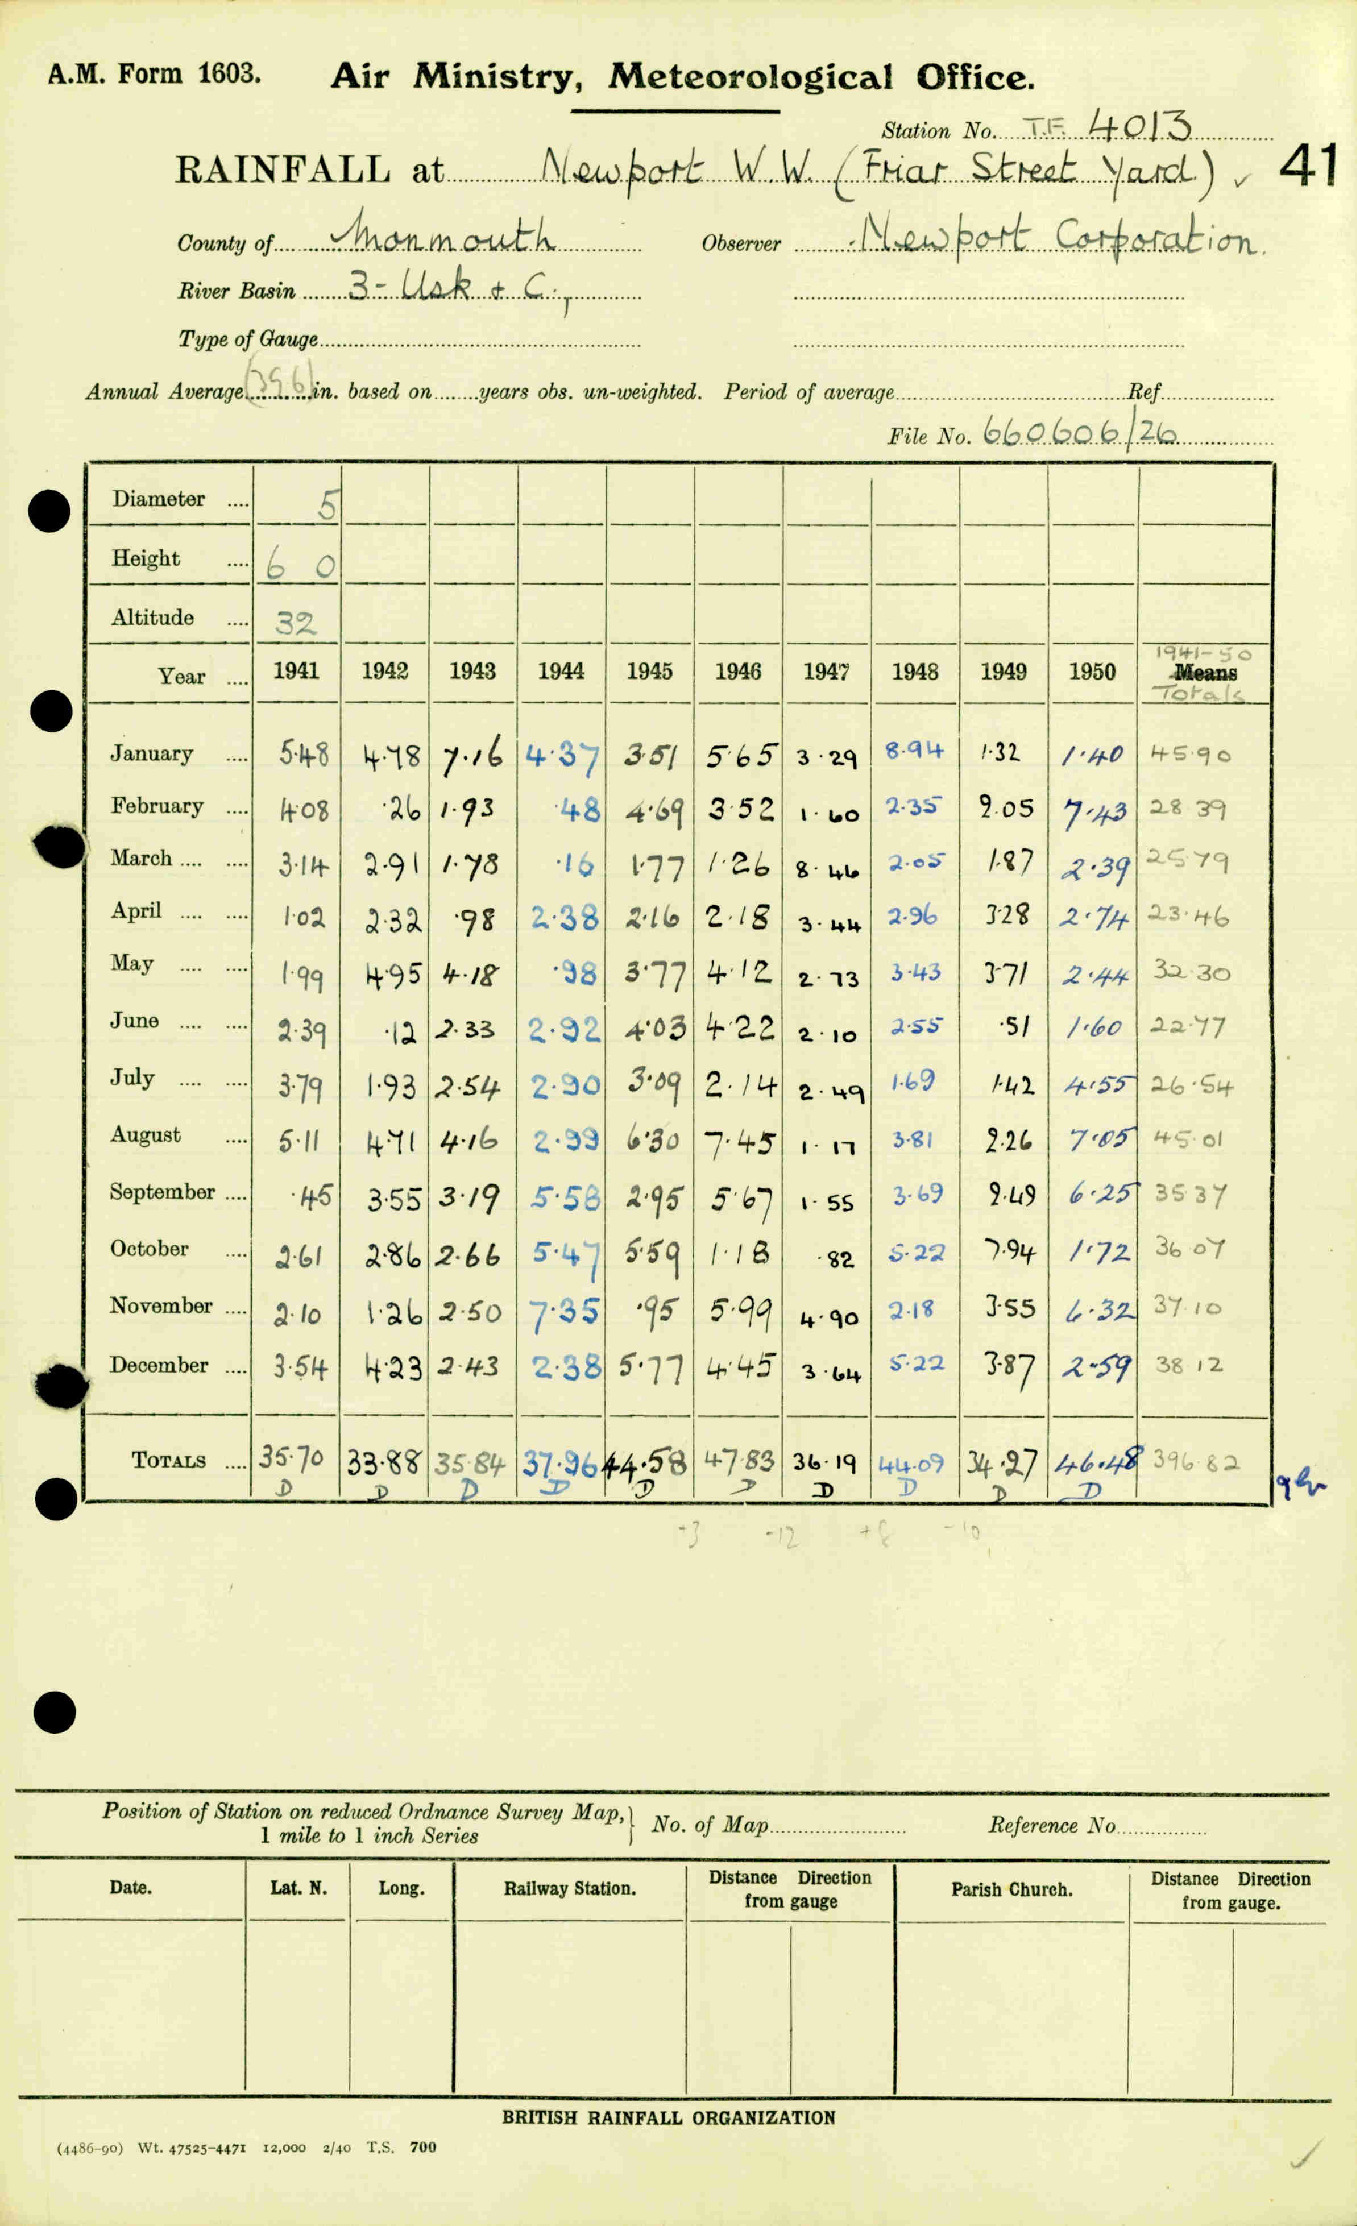 A.M. Form 1603. Air Ministry, Meteorological Office.
Station No. T.F. 4013
RAINFALL at Newport W.W. (Friar Street Yard) ✓ 41
County of Monmouth Observer Newport Corporation.
River Basin 3 - Usk + C.,
Type of Gauge
Annual Average (39.6) in. based on years obs. un-weighted. Period of average Ref
File No. 660606/26
Diameter .... 5
Height .... 6 0
Altitude .... 32
1941-50
Year .... 1941 1942 1943 1944 1945 1946 1947 1948 1949 1950 Means
Totals
January .... 5.48 4.78 7.16 4.37 3.51 5.65 3.29 8.94 1.32 1.40 45.90
February .... 4.08 .26 1.93 .48 4.69 3.52 1.60 2.35 2.05 7.43 28 39
March .... .... 3.14 2.91 1.78 .16 1.77 1.26 8.46 2.05 1.87 2.39 25 79
April .... .... 1.02 2.32 .98 2.38 2.16 2.18 3.44 2.96 3.28 2.74 23.46
May .... .... 1.99 4.95 4.18 .98 3.77 4.12 2.73 3.43 3.71 2.44 32.30
June .... .... 2.39 .12 2.33 2.92 4.03 4.22 2.10 2.55 .51 1.60 22.77
July .... .... 3.79 1.93 2.54 2.90 3.09 2.14 2.49 1.69 1.42 4.55 26.54
August .... 5.11 4.71 4.16 2.99 6.30 7.45 1.17 3.81 2.26 7.05 45.01
September .... .45 3.55 3.19 5.58 2.95 5.67 1.55 3.69 2.49 6.25 35.37
October .... 2.61 2.86 2.66 5.47 5.59 1.18 .82 5.22 7.94 1.72 36 07
November .... 2.10 1.26 2.50 7.35 .95 5.99 4.90 2.18 3.55 6.32 37.10
December .... 3.54 4.23 2.43 2.38 5.77 4.45 3.64 5.22 3.87 2.59 38 12
TOTALS .... 35.70 33.88 35.84 37.96 44.58 47.83 36.19 44.09 34.27 46.48 396.82
D D D D D D D D D D
-3 -12 +8 -10
Position of Station on reduced Ordnance Survey Map, } No. of Map Reference No.
1 mile to 1 inch Series
Date. Lat. N. Long. Railway Station. Distance Direction from gauge Parish Church. Distance Direction from gauge.
BRITISH RAINFALL ORGANIZATION
(4486-90) Wt. 47525-4471 12,000 2/40 T.S. 700